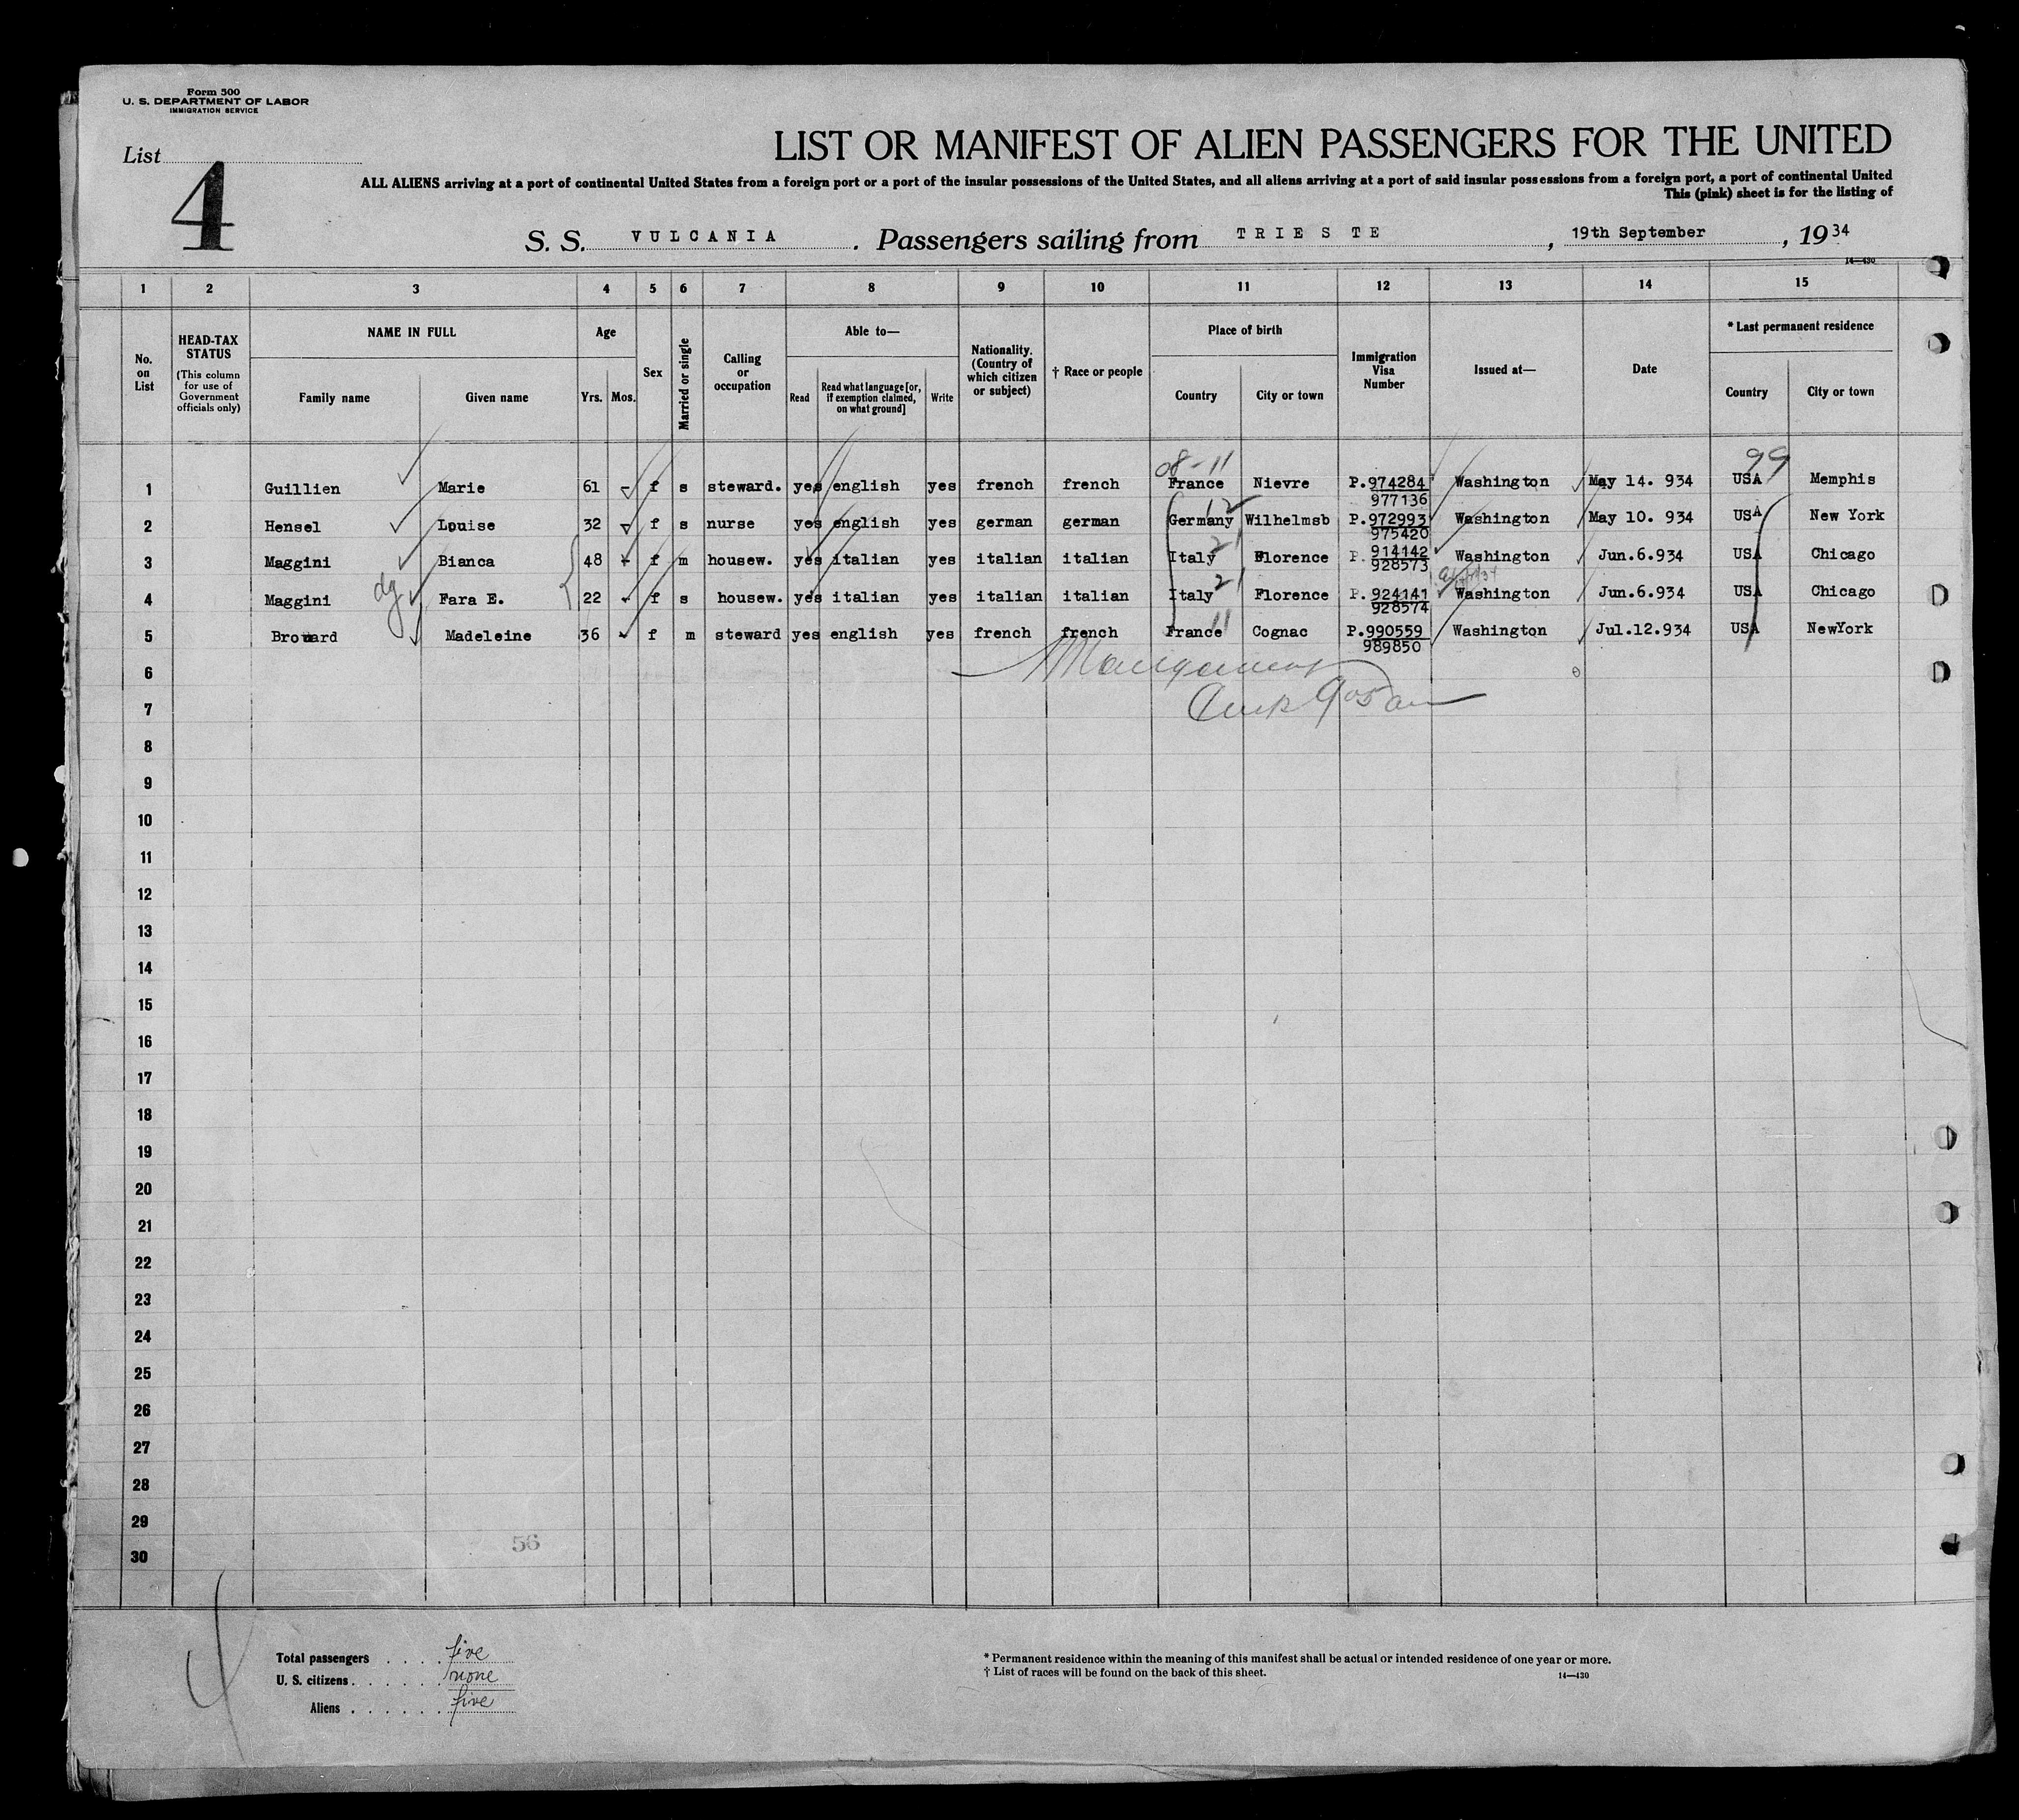 Form 500
U. S. DEPARTMENT OF LABOR
IMMIGRATION SERVICE
List
4
LIST OR MANIFEST OF ALIEN PASSENGERS FOR THE UNITED
ALL ALIENS arriving at a port of continental United States from a foreign port or a port of the insular possessions of the United States, and all aliens arriving at a port of said insular possessions from a foreign port, a port of continental United
This (pink) sheet is for the listing of
S. S. VULCANIA . Passengers sailing from TRIESTE , 19th September , 1934
14—430
1 2 3 4 5 6 7 8 9 10 11 12 13 14 15
No. on List
HEAD-TAX STATUS
(This column for use of Government officials only)
NAME IN FULL
Family name Given name
Age
Yrs. Mos.
Sex
Married or single
Calling or occupation
Able to—
Read Read what language [or, if exemption claimed, on what ground] Write
Nationality. (Country of which citizen or subject)
† Race or people
Place of birth
Country City or town
Immigration Visa Number
Issued at—
Date
* Last permanent residence
Country City or town
08-11 99
1 Guillien Marie 61 - f s steward. yes english yes french french France Nievre P.974284 Washington May 14. 934 USA Memphis
977136
12
2 Hensel Louise 32 - f s nurse yes english yes german german Germany Wilhelmsb P.972993 Washington May 10. 934 USA New York
975420
21
3 Maggini Bianca 48 - f m housew. yes italian yes italian italian Italy Florence P.914142 Washington Jun.6.934 USA Chicago
928573
dg 21
4 Maggini Fara E. 22 - f s housew. yes italian yes italian italian Italy Florence P.924141 Washington Jun.6.934 USA Chicago
928574
5 Broward Madeleine 36 - f m steward yes english yes french french France 11 Cognac P.990559 Washington Jul.12.934 USA NewYork
989850
6
7
8
9
10
11
12
13
14
15
16
17
18
19
20
21
22
23
24
25
26
27
28
29
30
56
Total passengers . . . . five
U. S. citizens . . . . . . none
Aliens . . . . . . five
* Permanent residence within the meaning of this manifest shall be actual or intended residence of one year or more.
† List of races will be found on the back of this sheet.
14—430